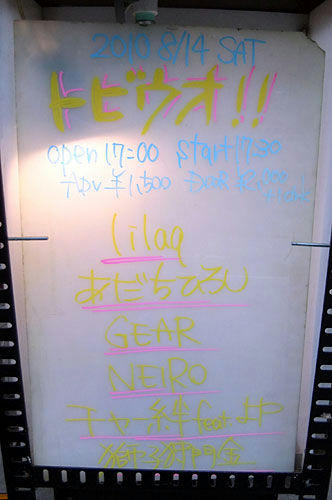 2010 8/14 SAT
トビウオ!!
open 17:00 start 17:30
Adv ¥1,500 Door
lilaq
あだちひろし
GEAR
NEIRO
feat.